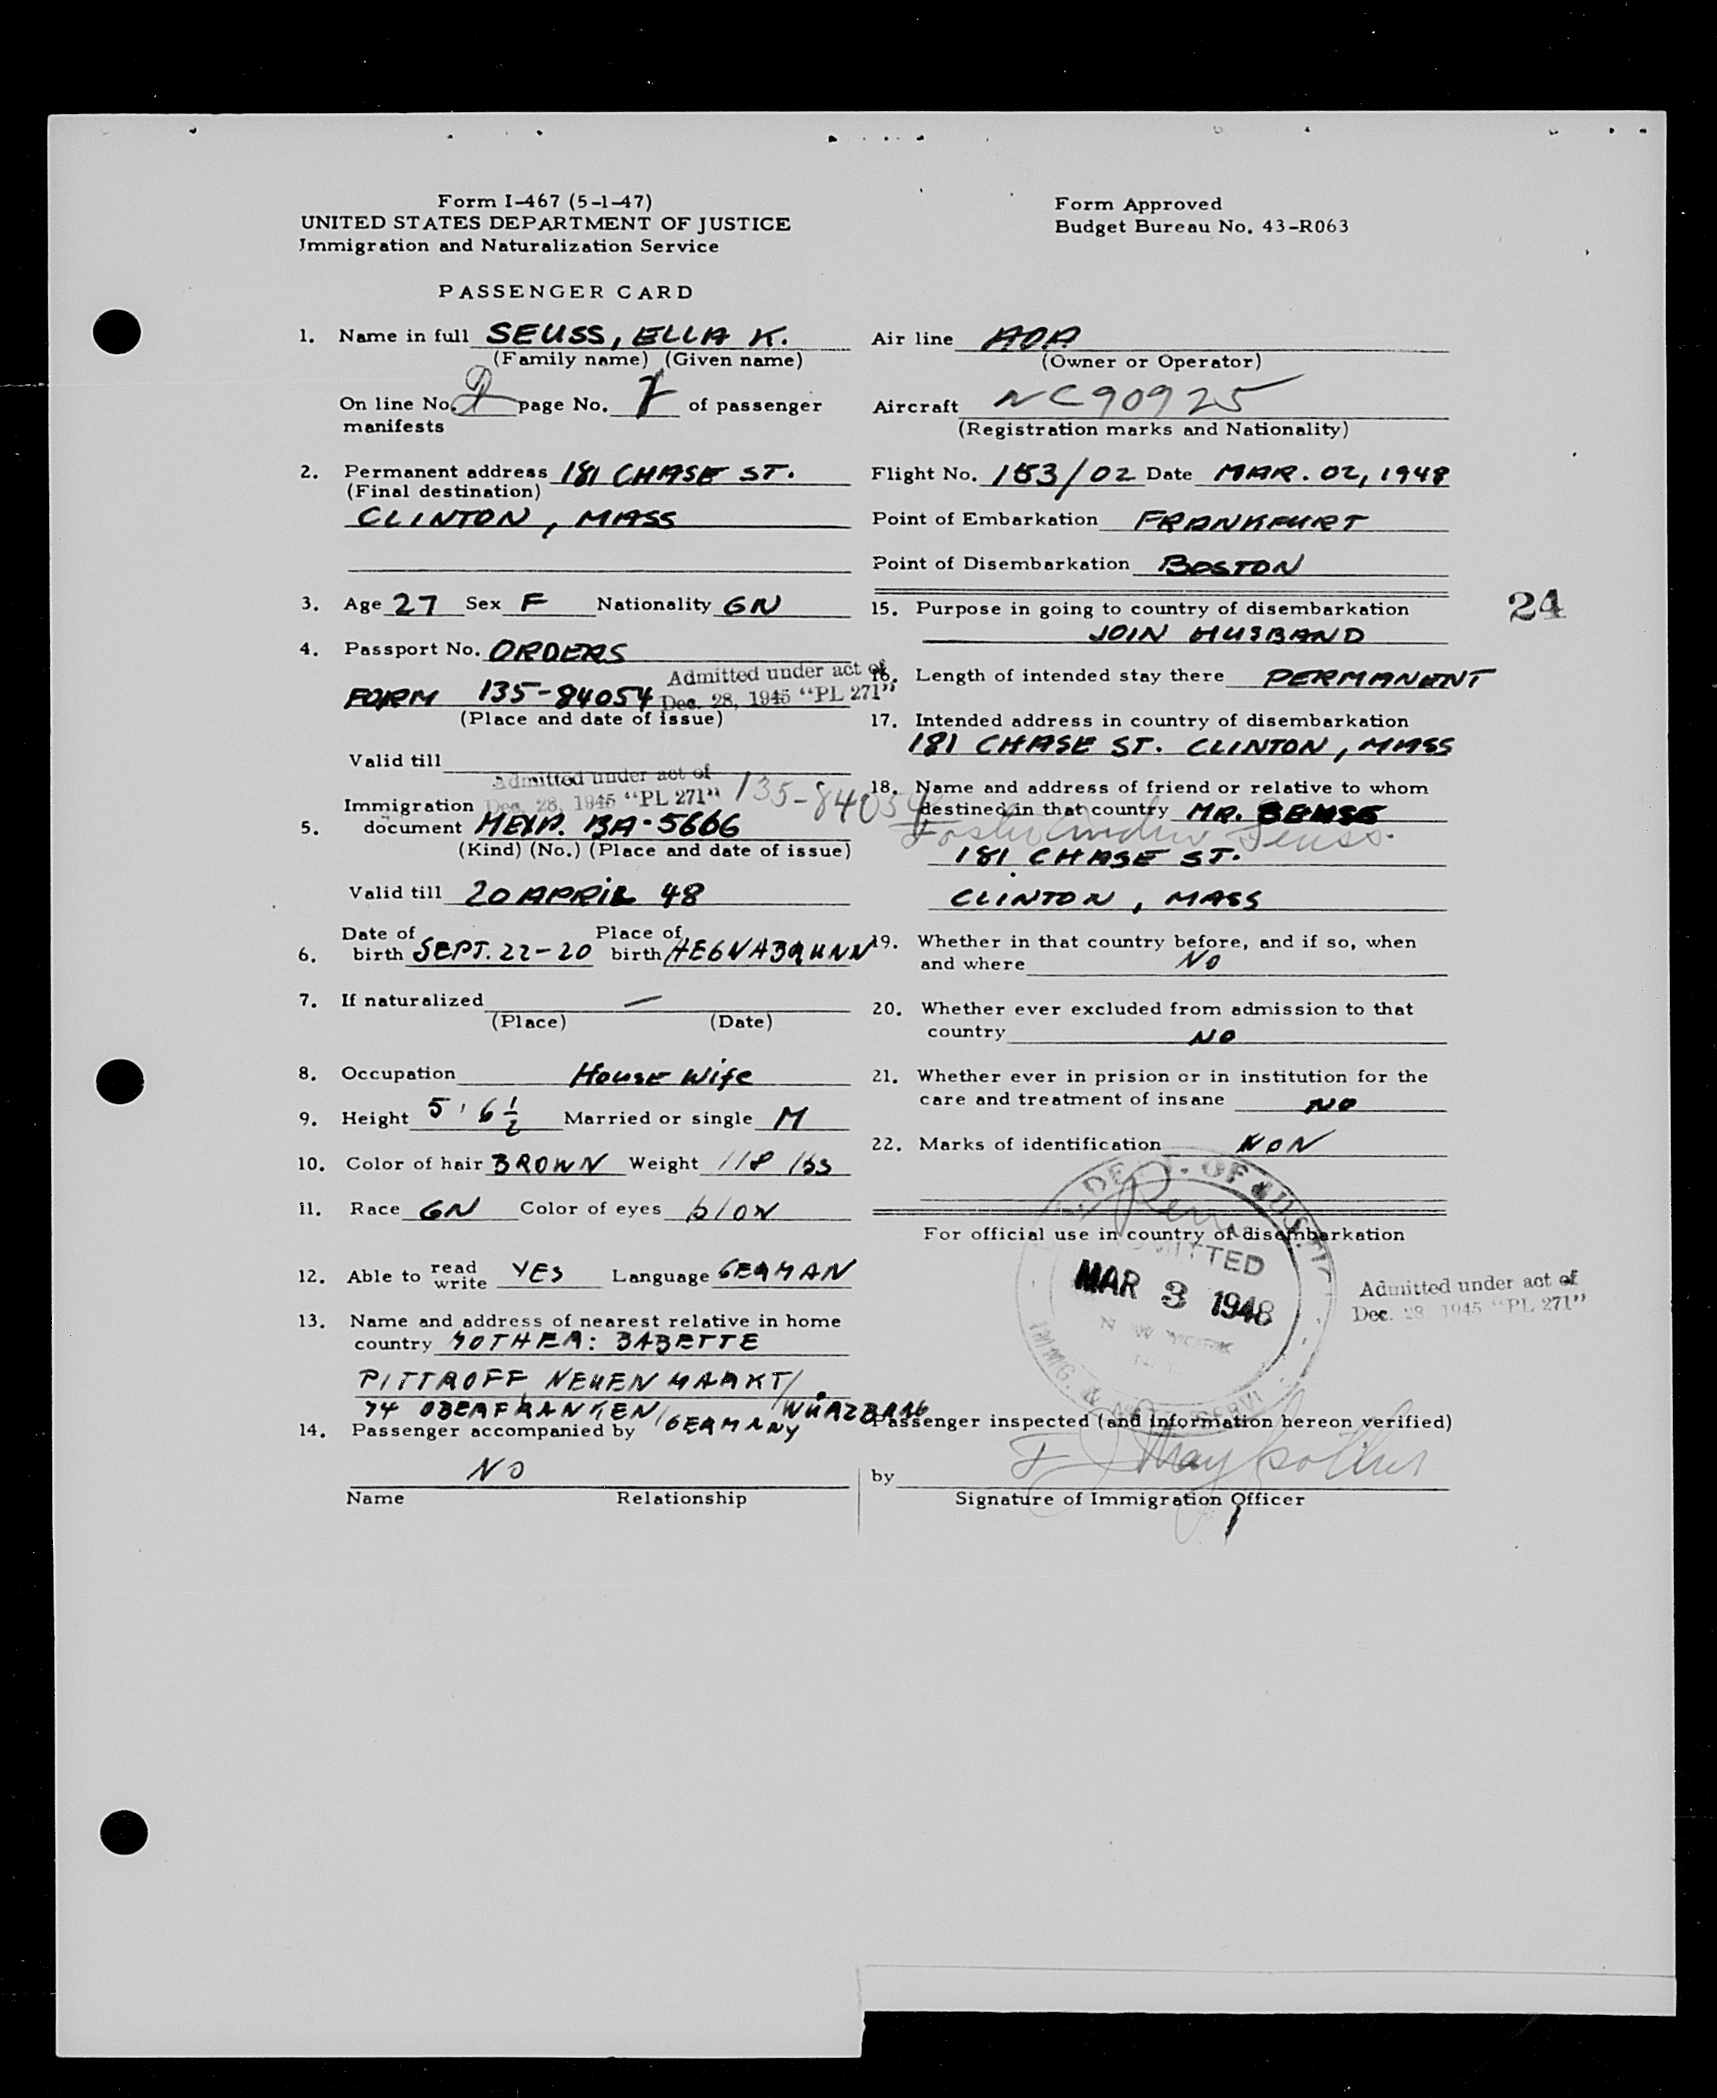 Form I-467 (5-1-47)
UNITED STATES DEPARTMENT OF JUSTICE
Immigration and Naturalization Service
Form Approved
Budget Bureau No. 43-R063
PASSENGER CARD
1. Name in full SEUSS, ELLA K.
(Family name) (Given name)
On line No. 2 page No. of passenger
manifests
2. Permanent address 181 CHASE ST.
(Final destination)
CLINTON, MASS
3. Age 27 Sex F Nationality GN
4. Passport No. ORDERS
Admitted under act of
Dec. 28, 1945 "PL 271"
FORM 135-84054
(Place and date of issue)
Valid till
Admitted under act of
Dec. 28, 1945 "PL 271" 135-84054
Immigration
5. document BA-5666
(Kind) (No.) (Place and date of issue)
Valid till 20 APRIL 48
6. Date of birth SEPT. 22-20 Place of birth
7. If naturalized —
(Place) (Date)
8. Occupation House Wife
9. Height 5' 6 1/2 Married or single M
10. Color of hair BROWN Weight 118 lbs
11. Race GN Color of eyes
12. Able to read write YES Language GERMAN
13. Name and address of nearest relative in home
country MOTHER: BABETTE
PITTROFF NEUENMARKT/
74 OBERFRANKEN/ WÜRZBURG
GERMANY
14. Passenger accompanied by
NO
Name Relationship
Air line AOA
(Owner or Operator)
Aircraft NC90925
(Registration marks and Nationality)
Flight No. 153/02 Date MAR. 02, 1948
Point of Embarkation FRANKFURT
Point of Disembarkation BOSTON
15. Purpose in going to country of disembarkation
JOIN HUSBAND
24
16. Length of intended stay there PERMANENT
17. Intended address in country of disembarkation
181 CHASE ST. CLINTON, MASS
18. Name and address of friend or relative to whom
destined in that country MR. SEUSS
Foster Andrew Seuss.
181 CHASE ST.
CLINTON, MASS
19. Whether in that country before, and if so, when
and where NO
20. Whether ever excluded from admission to that
country NO
21. Whether ever in prision or in institution for the
care and treatment of insane NO
22. Marks of identification NON
For official use in country of disembarkation
DEPT. OF JUSTICE
ADMITTED
MAR 3 1948
NEW YORK
IMMG. & NATZ. SERV.
Admitted under act of
Dec. 28, 1945 "PL 271"
Passenger inspected (and information hereon verified)
by
Signature of Immigration Officer